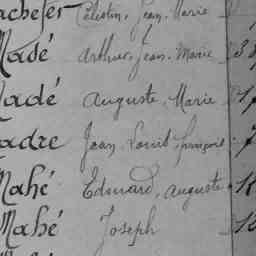 Célestin, Jean Marie
Madé Arthur, Jean Marie
Madé Auguste, Marie
Jean Louis François
Mahé Edmard, Auguste
Mahé Joseph